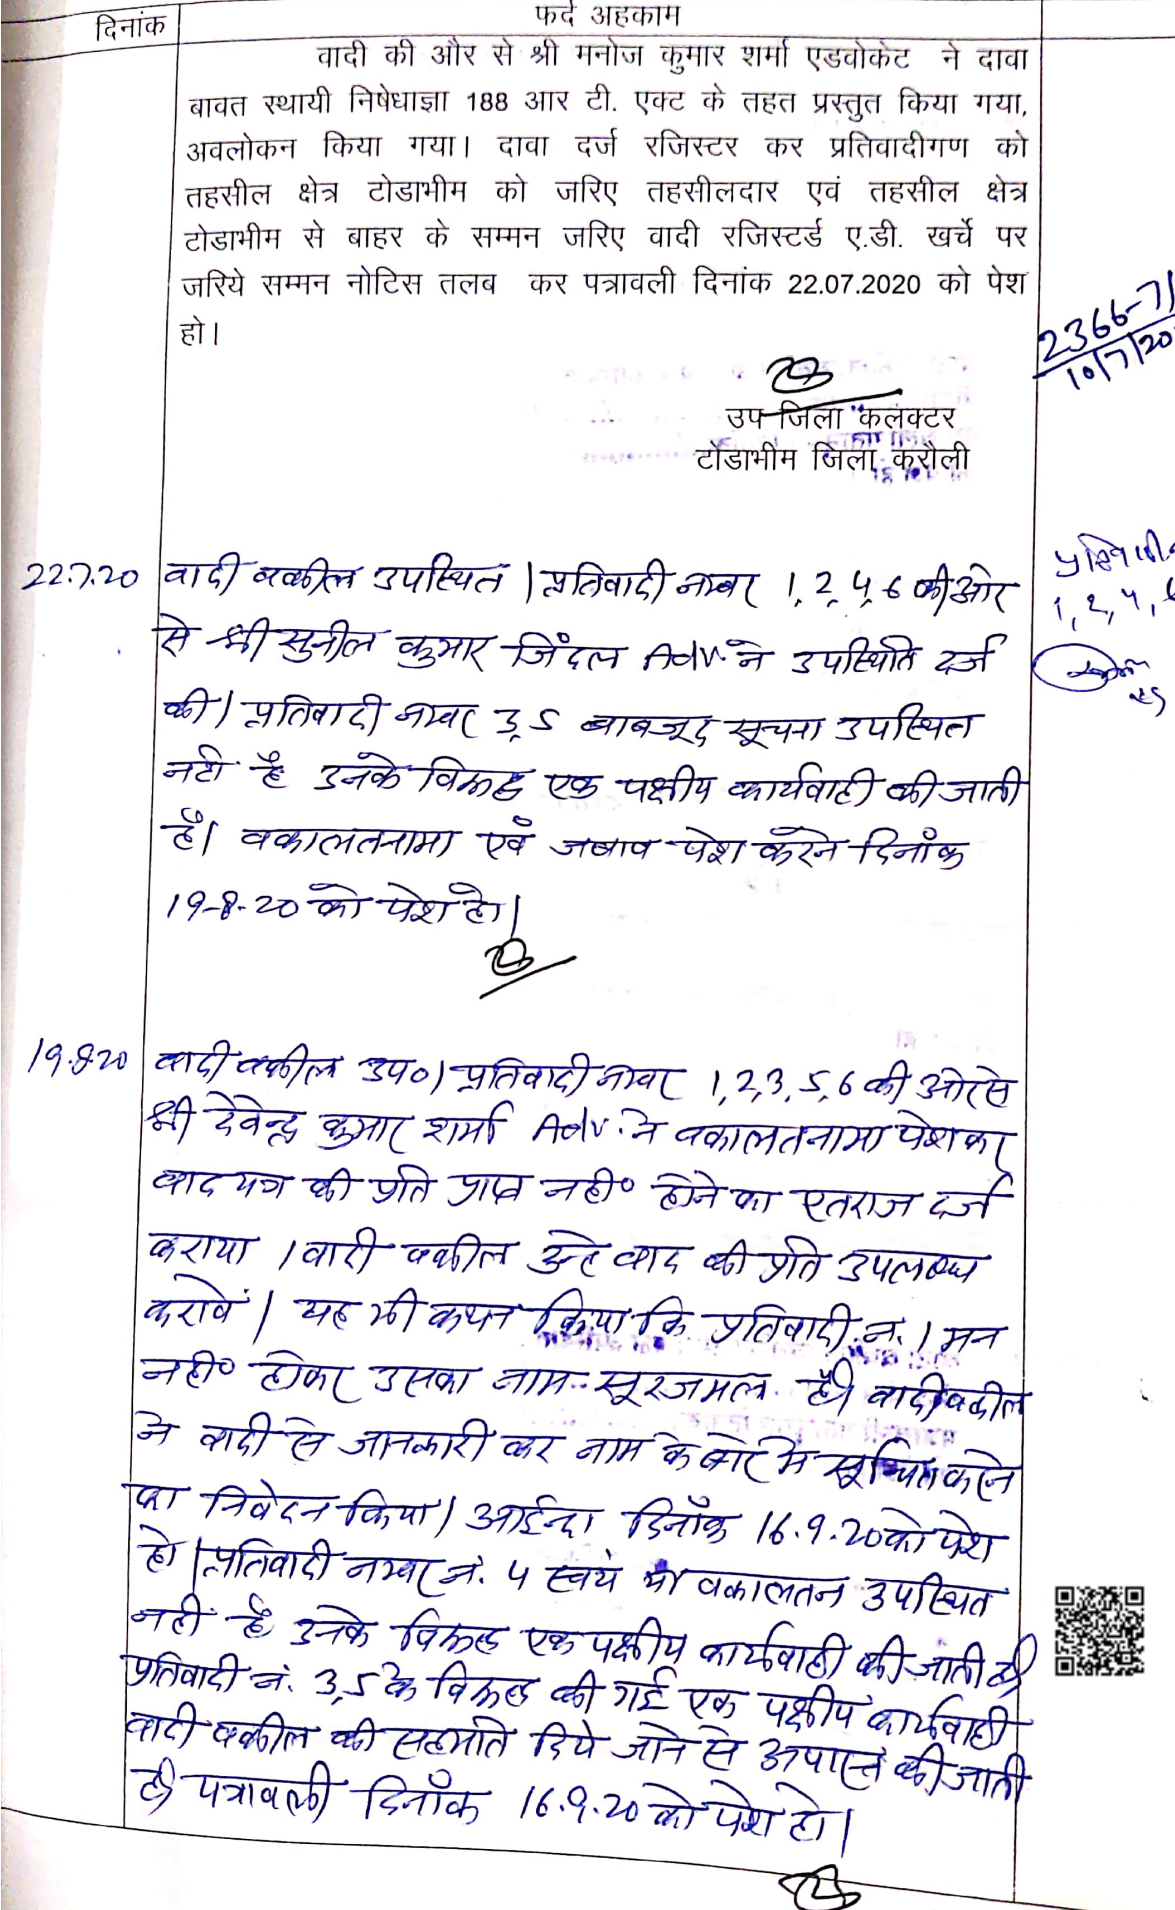 दिनांक
फर्द अहकाम
वादी की और से श्री मनोज कुमार शर्मा एडवोकेट ने दावा
बावत स्थायी निषेधाज्ञा 188 आर टी. एक्ट के तहत प्रस्तुत किया गया,
अवलोकन किया गया। दावा दर्ज रजिस्टर कर प्रतिवादीगण को
तहसील क्षेत्र टोडाभीम को जरिए तहसीलदार एवं तहसील क्षेत्र
टोडाभीम से बाहर के सम्मन जरिए वादी रजिस्टर्ड ए.डी. खर्चे पर
जरिये सम्मन नोटिस तलब कर पत्रावली दिनांक 22.07.2020 को पेश
हो।
2366-71
10/7/20
उप जिला कलक्टर
टोडाभीम जिला करौली
22.7.20 वादी वकील उपस्थित । प्रतिवादी नम्बर 1, 2, 4, 6 की ओर
से श्री सुनील कुमार जिंदल Adv. ने उपस्थिति दर्ज
की। प्रतिवादी नम्बर 3, 5 बाबजूद सूचना उपस्थित
नही है उनके विरूद्ध एक पक्षीय कार्यवाही की जाती
है। वकालतनामा एवं जबाव पेश करने दिनाँक
19-8-20 को पेश हो।
1, 2, 4, 6
19.8.20 वादी वकील उप०। प्रतिवादी नम्बर 1,2,3,5,6 की ओर से
श्री देवेन्द्र कुमार शर्मा Adv. ने वकालतनामा पेश कर
वाद पत्र की प्रति प्राप्त नही० होने का एतराज दर्ज
कराया । वादी वकील उन्हे वाद की प्रति उपलब्ध
करावें। यह भी कथन किया कि प्रतिवादी नं. 1 मन
नही० होकर उसका नाम सूरजमल है। वादी वकील
ने वादी से जानकारी कर नाम के बारे मे सूचित करने
का निवेदन किया। आईन्दा दिनाँक 16.9.20 को पेश
हो। प्रतिवादी नम्बर नं. 4 स्वयं या वकालतन उपस्थित
नही है उनके विरूद्ध एक पक्षीय कार्यवाही की जाती है।
प्रतिवादी नं. 3,5 के विरूद्ध की गई एक पक्षीय कार्यवाही
वादी वकील की सहमति दिये जाने से अपास्त की जाती
है। पत्रावली दिनाँक 16.9.20 को पेश हो।